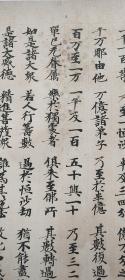 一千一百等 乃至一恒沙
千万那由他 万億諸弟子 乃至於半億 其數復過上
百万至一万 一千及一百 五十與一十 乃至三二一
單己无眷屬 樂於獨處者 俱來至佛所 其數轉過上
如是諸大眾 若人行籌數 過於恒沙劫 猶不能盡知
是諸大威德 精進菩薩眾 誰為其說法 教化而